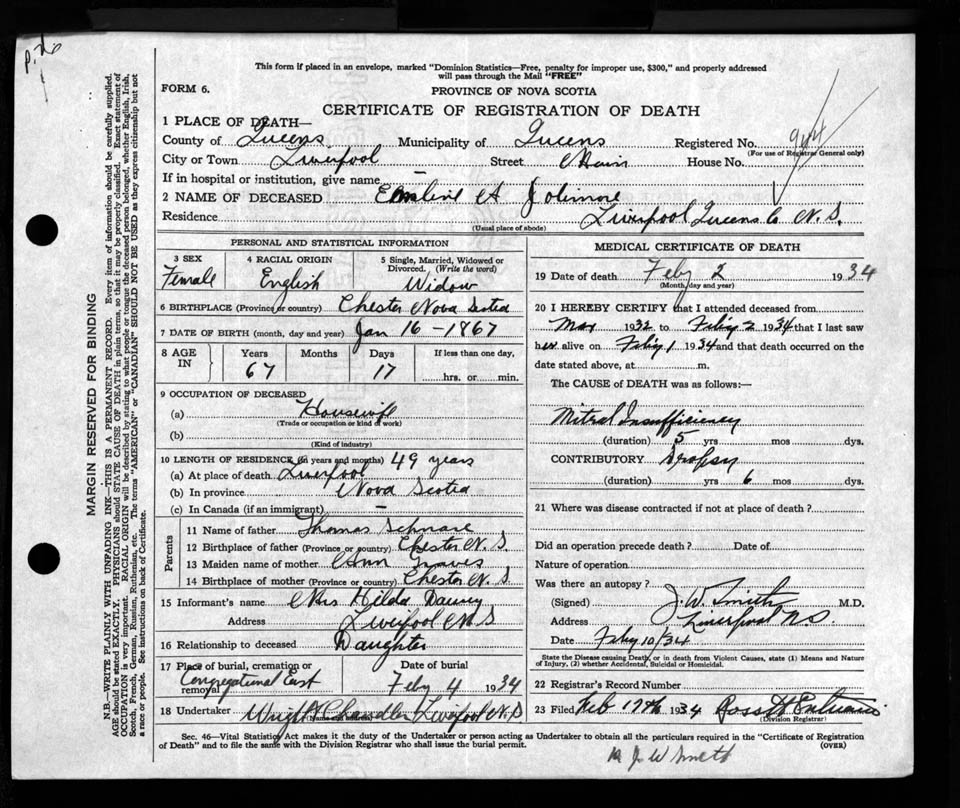 This form if placed in an envelope, marked "Dominion Statistics—Free, penalty for improper use, $300," and properly addressed
will pass through the Mail "FREE"
FORM 6.
PROVINCE OF NOVA SCOTIA
CERTIFICATE OF REGISTRATION OF DEATH
1 PLACE OF DEATH—
County of Queens Municipality of Queens Registered No. 944
(For use of Registrar General only)
City or Town Liverpool Street Main House No.
If in hospital or institution, give name —
2 NAME OF DECEASED A Jolimore
Residence Liverpool Queens Co N.S.
(Usual place of abode)
PERSONAL AND STATISTICAL INFORMATION
3 SEX Female
4 RACIAL ORIGIN English
5 Single, Married, Widowed or Divorced. (Write the word) Widow
6 BIRTHPLACE (Province or country) Chester Nova Scotia
7 DATE OF BIRTH (month, day and year) Jan 16 - 1867
8 AGE IN Years 67 Months Days 17 If less than one day, hrs. or min.
9 OCCUPATION OF DECEASED
(a) Housewife
(Trade or occupation or kind of work)
(b)
(Kind of industry)
10 LENGTH OF RESIDENCE (in years and months) 49 years
(a) At place of death Liverpool
(b) In province Nova Scotia
(c) In Canada (if an immigrant) —
Parents
11 Name of father Thomas Schnare
12 Birthplace of father (Province or country) Chester N.S.
13 Maiden name of mother Ann Graves
14 Birthplace of mother (Province or country) Chester N.S
15 Informant's name Mrs Hilda
Address Liverpool N.S
16 Relationship to deceased Daughter
17 Place of burial, cremation or removal Congregational East
Date of burial Feby 4 1934
18 Undertaker Wright Chandler Liverpool N.S
MEDICAL CERTIFICATE OF DEATH
19 Date of death Feby 2 1934
(Month, day and year)
20 I HEREBY CERTIFY that I attended deceased from
Mar 1932 to Feby 2 1934 that I last saw
her alive on Feby 1 1934 and that death occurred on the
date stated above, at m.
The CAUSE OF DEATH was as follows:—
Mitral Insufficiency
(duration) 5 yrs mos dys.
CONTRIBUTORY Dropsy
(duration) yrs 6 mos dys.
21 Where was disease contracted if not at place of death?
Did an operation precede death? Date of
Nature of operation
Was there an autopsy?
(Signed) J.W. Smith M.D.
Address Liverpool N.S.
Date Feby 10/34
State the Disease causing Death, or in death from Violent Causes, state (1) Means and Nature
of Injury, (2) whether Accidental, Suicidal or Homicidal.
22 Registrar's Record Number
23 Filed Feb 17th 1934
(Division Registrar)
Sec. 46—Vital Statistics Act makes it the duty of the Undertaker or person acting as Undertaker to obtain all the particulars required in the "Certificate of Registration
of Death" and to file the same with the Division Registrar who shall issue the burial permit.
(OVER)
J W Smith
MARGIN RESERVED FOR BINDING
N.B.—WRITE PLAINLY WITH UNFADING INK—THIS IS A PERMANENT RECORD. Every item of information should be carefully supplied.
AGE should be stated EXACTLY. PHYSICIANS should STATE CAUSE OF DEATH in plain terms, so that it may be properly classified. Exact statement of
OCCUPATION is very important. RACIAL ORIGIN will be described by stating to what people or tongue the deceased person belonged, whether English, Irish,
Scotch, French, German, Russian, Ruthenian, etc. The terms "AMERICAN" or "CANADIAN" SHOULD NOT BE USED as they express citizenship but not
a race or people. See instructions on back of Certificate.